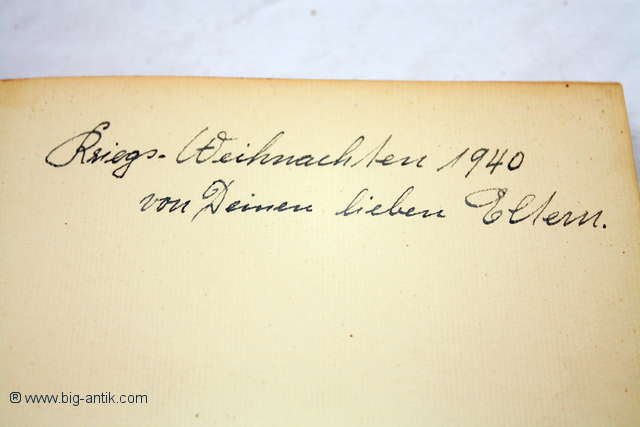 Kriegs-Weihnachten 1940
von Deinen lieben Eltern.
® www.big-antik.com